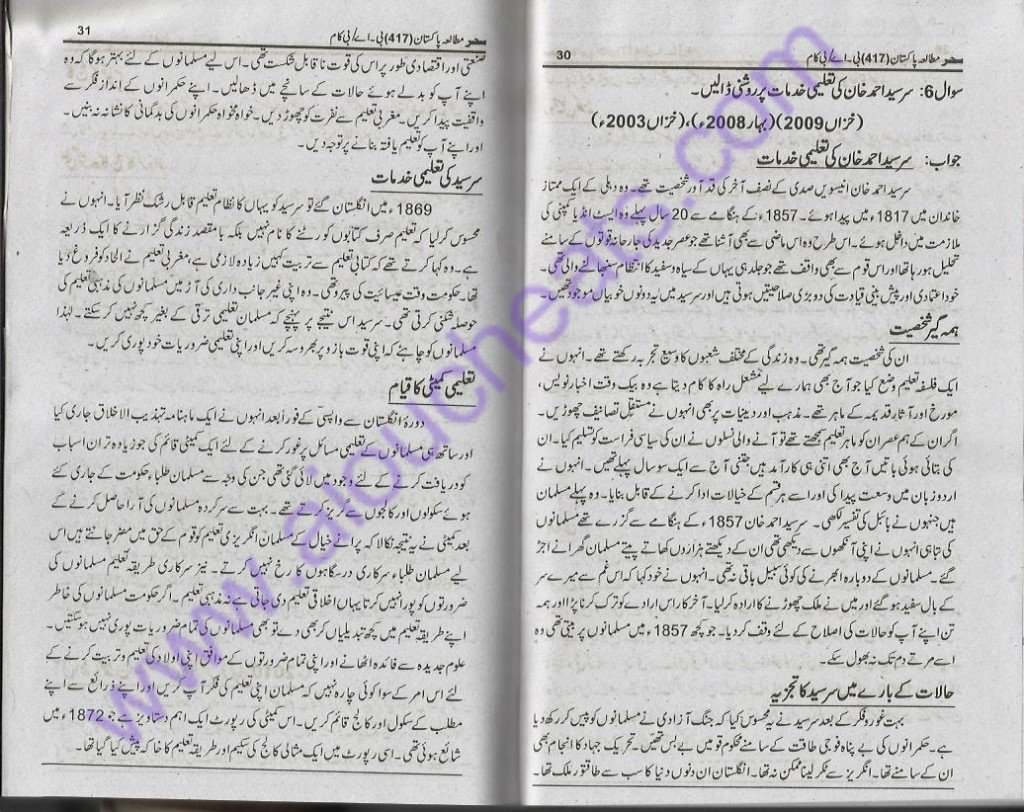 سحر مطالعہ پاکستان (417) بی۔اے/بی کام 30
سوال6: سرسید احمد خان کی تعلیمی خدمات پر روشنی ڈالیں۔
(خزاں 2009)(بہار2008ء)،(خزاں 2003ء)
جواب: سرسید احمد خان کی تعلیمی خدمات
سرسید احمد خان انیسویں صدی کے نصف آخر کی قد آور شخصیت تھے۔ وہ دہلی کے ایک ممتاز
خاندان میں 1817ء میں پیدا ہوئے۔ 1857ء کے ہنگامے سے 20 سال پہلے وہ ایسٹ انڈیا کمپنی کی
ملازمت میں داخل ہوئے۔ اس طرح وہ اس ماضی سے بھی آشنا تھے جو عصر جدید کی جارحانہ قوتوں کے سامنے
تحلیل ہو رہا تھا اور اس قوم سے بھی واقف تھے جو جلد ہی یہاں کے سیاہ و سفید کا انتظام سنبھالنے والی تھی۔
خود اعتمادی اور پیش بینی قیادت کی دو بڑی صلاحیتیں ہوتی ہیں اور سرسید میں یہ دونوں خوبیاں موجود تھیں۔
ہمہ گیر شخصیت
ان کی شخصیت ہمہ گیر تھی۔ وہ زندگی کے مختلف شعبوں کا وسیع تجربہ رکھتے تھے۔ انہوں نے
ایک فلسفہ تعلیم وضع کیا جو آج بھی ہمارے لیے مشعل راہ کا کام دیتا ہے وہ بیک وقت اخبار نویس،
مورخ اور آثار قدیمہ کے ماہر تھے۔ مذہب اور دینیات پر بھی انہوں نے مستقل تصانیف چھوڑیں۔
اگر ان کے ہم عصر ان کو ماہر تعلیم سمجھتے تھے تو آنے والی نسلوں نے ان کی سیاسی فراست کو تسلیم کیا۔ ان
کی بتائی ہوئی باتیں آج بھی اتنی ہی کارآمد ہیں جتنی آج سے ایک سو سال پہلے تھیں۔ انہوں نے
اردو زبان میں وسعت پیدا کی اور اسے ہر قسم کے خیالات ادا کرنے کے قابل بنایا۔ وہ پہلے مسلمان
ہیں جنہوں نے بائبل کی تفسیر لکھی۔ سرسید احمد خان 1857ء کے ہنگامے سے گزرے تھے مسلمانوں
کی تباہی انہوں نے اپنی آنکھوں سے دیکھی تھی ان کے دیکھتے ہزاروں کھاتے پیتے مسلمان گھرانے اجڑ
گئے۔ مسلمانوں کے دوبارہ ابھرنے کی کوئی سبیل باقی نہ تھی۔ انہوں نے خود کہا کہ اس غم سے میرے سر
کے بال سفید ہو گئے اور میں نے ملک چھوڑنے کا ارادہ کر لیا۔ آخر کار اس ارادے کو ترک کرنا پڑا اور ہمہ
تن اپنے آپ کو حالات کی اصلاح کے لئے وقف کر دیا۔ جو کچھ 1857ء میں مسلمانوں پر بیتی تھی وہ
اسے مرتے دم تک نہ بھول سکے۔
حالات کے بارے میں سرسید کا تجزیہ
بہت غور و فکر کے بعد سرسید نے یہ محسوس کیا کہ جنگ آزادی نے مسلمانوں کو پیس کر رکھ دیا
ہے۔ حکمرانوں کی بے پناہ فوجی طاقت کے سامنے محکوم قومیں بے بس تھیں۔ تحریک جہاد کا انجام بھی
ان کے سامنے تھا۔ انگریز سے ٹکر لینا ممکن نہ تھا۔ انگلستان ان دنوں دنیا کا سب سے طاقتور ملک تھا۔
سحر مطالعہ پاکستان (417) بی۔اے/بی کام 31
صنعتی اور اقتصادی طور پر اس کی قوت ناقابل شکست تھی۔ اس لیے مسلمانوں کے لئے بہتر ہو گا کہ وہ
اپنے آپ کو بدلے ہوئے حالات کے سانچے میں ڈھالیں۔ اپنے حکمرانوں کے انداز فکر سے
واقفیت پیدا کریں۔ مغربی تعلیم سے نفرت کو چھوڑ دیں۔ خواہ مخواہ حکمرانوں کی بدگمانی کا نشانہ نہ بنیں۔
اور اپنے آپ کو تعلیم یافتہ بنانے پر توجہ دیں۔
سرسید کی تعلیمی خدمات
1869ء میں انگلستان گئے تو سرسید کو یہاں کا نظام تعلیم قابل رشک نظر آیا۔ انہوں نے
محسوس کر لیا کہ تعلیم صرف کتابوں کو رٹنے کا نام نہیں بلکہ بامقصد زندگی گزارنے کا ایک ذریعہ
ہے۔ وہ کہا کرتے تھے کہ کتابی تعلیم سے تربیت کہیں زیادہ لازمی ہے۔ مغربی تعلیم نے الحاد کو فروغ دیا
تھا۔ حکومت وقت عیسائیت کی پیرو تھی۔ وہ اپنی غیر جانب داری کی آڑ میں مسلمانوں کی مذہبی تعلیم کی
حوصلہ شکنی کرتی تھی۔ سرسید اس نتیجے پر پہنچے کہ مسلمان تعلیمی ترقی کے بغیر کچھ نہیں کر سکتے۔ لہٰذا
مسلمانوں کو چاہئے کہ اپنی قوت بازو پر بھروسہ کریں اور اپنی تعلیمی ضروریات خود پوری کریں۔
تعلیمی کمیٹی کا قیام
دورہ انگلستان سے واپسی کے فوراً بعد انہوں نے ایک ماہنامہ تہذیب الاخلاق جاری کیا
اور ساتھ ہی مسلمانوں کے تعلیمی مسائل پر غور کرنے کے لئے ایک کمیٹی قائم کی جو زیادہ تر ان اسباب
کو دریافت کرنے کے لئے وجود میں لائی گئی تھی جن کی وجہ سے مسلمان طلباء حکومت کے جاری کئے
ہوئے سکولوں اور کالجوں سے گریز کرتے تھے۔ بہت سے سرکردہ مسلمانوں کی آرا حاصل کرنے کے
بعد کمیٹی نے یہ نتیجہ نکالا کہ پرانے خیال کے مسلمان انگریزی تعلیم کو قوم کے حق میں مضر جانتے ہیں اس
لیے مسلمان طلباء سرکاری درسگاہوں کا رخ نہیں کرتے۔ نیز سرکاری طریقہ تعلیم مسلمانوں کی
ضرورتوں کو پورا نہیں کرتا یہاں اخلاقی تعلیم دی جاتی ہے نہ مذہبی تعلیم۔ اگر حکومت مسلمانوں کی خاطر
اپنے طریقہ تعلیم میں کچھ تبدیلیاں کر بھی دے تو بھی مسلمانوں کی تمام ضروریات پوری نہیں ہو سکتیں۔
علوم جدیدہ سے فائدہ اٹھانے اور اپنی تمام ضرورتوں کے موافق اپنی اولاد کی تعلیم و تربیت کرنے کے
لئے اس امر کے سوا کوئی چارہ نہیں کہ مسلمان اپنی تعلیم کی فکر آپ کریں اور اپنے ذرائع سے اپنے
مطلب کے سکول اور کالج قائم کریں۔ اس کمیٹی کی رپورٹ ایک اہم دستاویز ہے جو 1872ء میں
شائع ہوئی تھی۔ اسی رپورٹ میں ایک مثالی کالج کی سکیم اور طریقہ تعلیم کا خاکہ پیش کیا گیا تھا۔
www.aioucheats.com